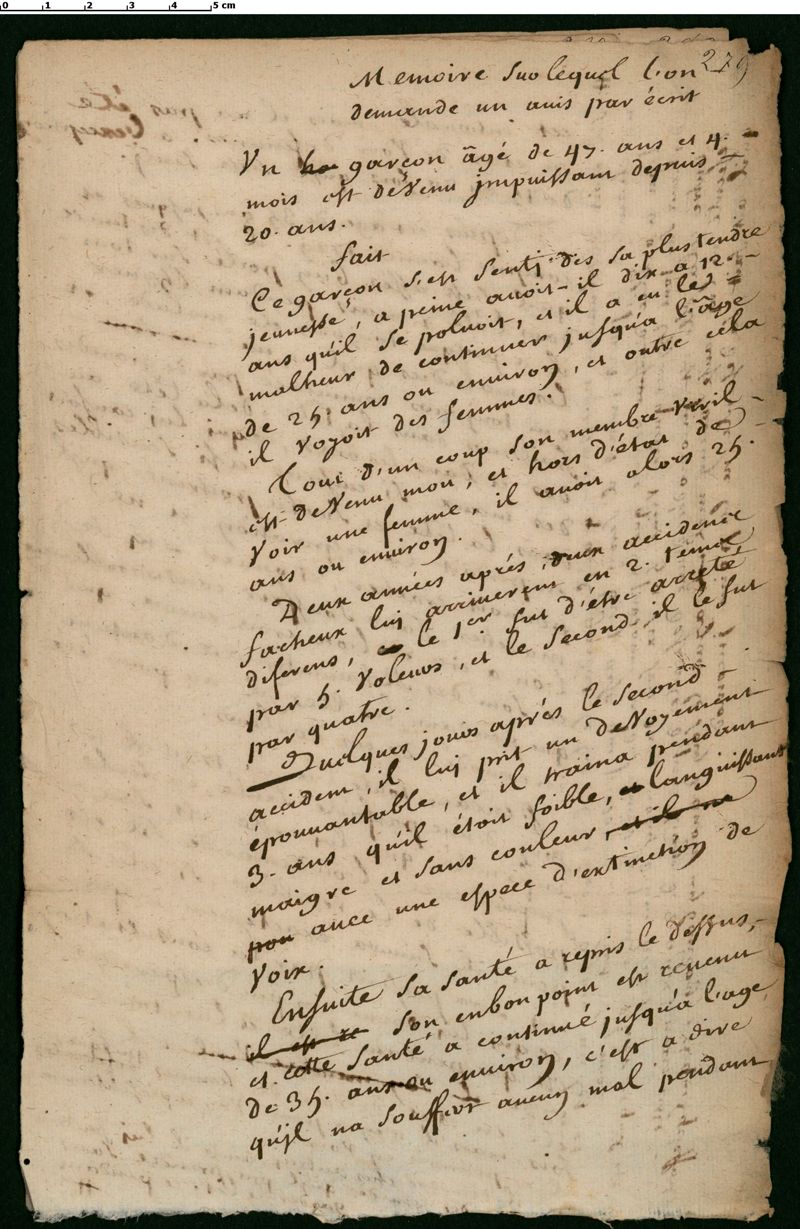 0 1 2 3 4 5 cm
279
Memoire sur lequel l'on
demande un auis par écrit
Vn garçon âgé de 47. ans et 4.
mois est deVenu jmpuissant depuis
20. ans.
fait
Ce garçon s'est sentj des sa plus tendre
jeunesse, a peine auoit-il dix a 12.
ans qu'il se poluoit, et il a eu le
malheur de continuer jusqu'a l'âge
de 25. ans ou environ, et outre cela
il Voyoit des femmes.
Tout d'un coup son membre Viril
est deVenu mou, et hors d'état de
Voir une femme, il auoit alors 25.
ans ou environ.
Deux années aprés, deux accidents
facheux luj arriuerent en 2. tems
diferens, le 1er fut d'étre arreté
par 5. Voleurs, et le second il le fut
par quatre.
Quelques jours aprés le second
accident, il luj prit un deVoyement
épouuantable, et il traina pendant
3. ans qu'il étoit foible, languissant
maigre et sans couleur, et il ne
auec une espece d'extinction de
Voix.
Ensuite sa santé a repris le dessus,
il est re son enbonpoint est reuenu
et cette santé a continué jusqu'a l'age
de 35. ans ou environ, c'est a dire
qu'jl na souffert aucun mal pendant